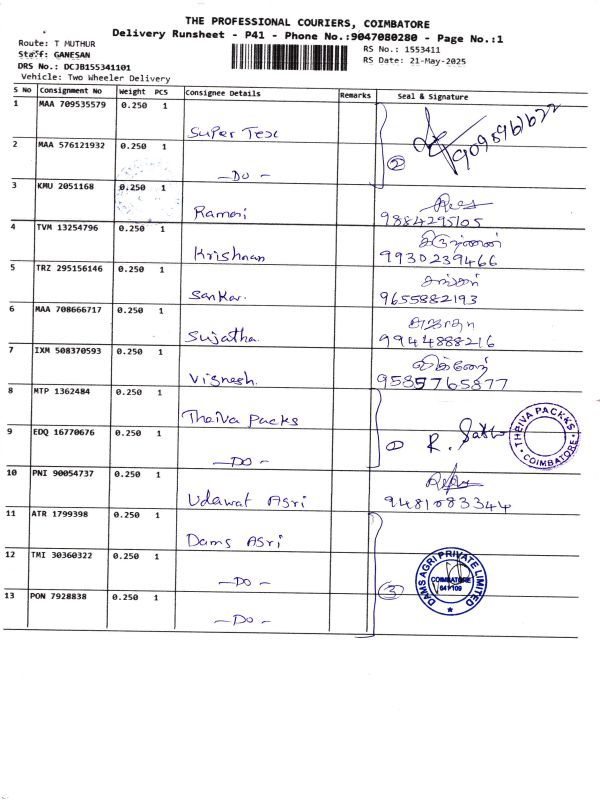 THE PROFESSIONAL COURIERS, COIMBATORE
Delivery Runsheet - P41 - Phone No.:9047080280 - Page No.:1
Route: T MUTHUR
RS No.: 1553411
Staff: GANESAN
RS Date: 21-May-2025
DRS No.: DCJB155341101
Vehicle: Two Wheeler Delivery
S No Consignment No Weight PCS Consignee Details Remarks Seal & Signature
1 MAA 709535579 0.250 1
Super Tex
2 MAA 576121932 0.250 1
②
-DO-
3 KMU 2051168 0.250 1
Ramani
9884295105
4 TVM 13254796 0.250 1
கிருஷ்ணன்
Krishnan 9930239466
5 TRZ 295156146 0.250 1
சங்கர்
Sankar. 9655882193
6 MAA 708666717 0.250 1
சுஜாதா
Sujatha. 9944888216
7 IXM 508370593 0.250 1
விக்னேஷ்
Vignesh. 9585765877
8 MTP 1362484 0.250 1
Theiva Packs
THEIVA PACKKS
COIMBATORE
9 EDQ 16770676 0.250 1
② R.
-DO-
10 PNI 90054737 0.250 1
Udawat Agri 9481083344
11 ATR 1799398 0.250 1
Dams Agri
12 TMI 30360322 0.250 1
DAMS AGRI PRIVATE LIMITED
COIMBATORE
641 109
-DO-
③
13 PON 7928838 0.250 1
-DO-